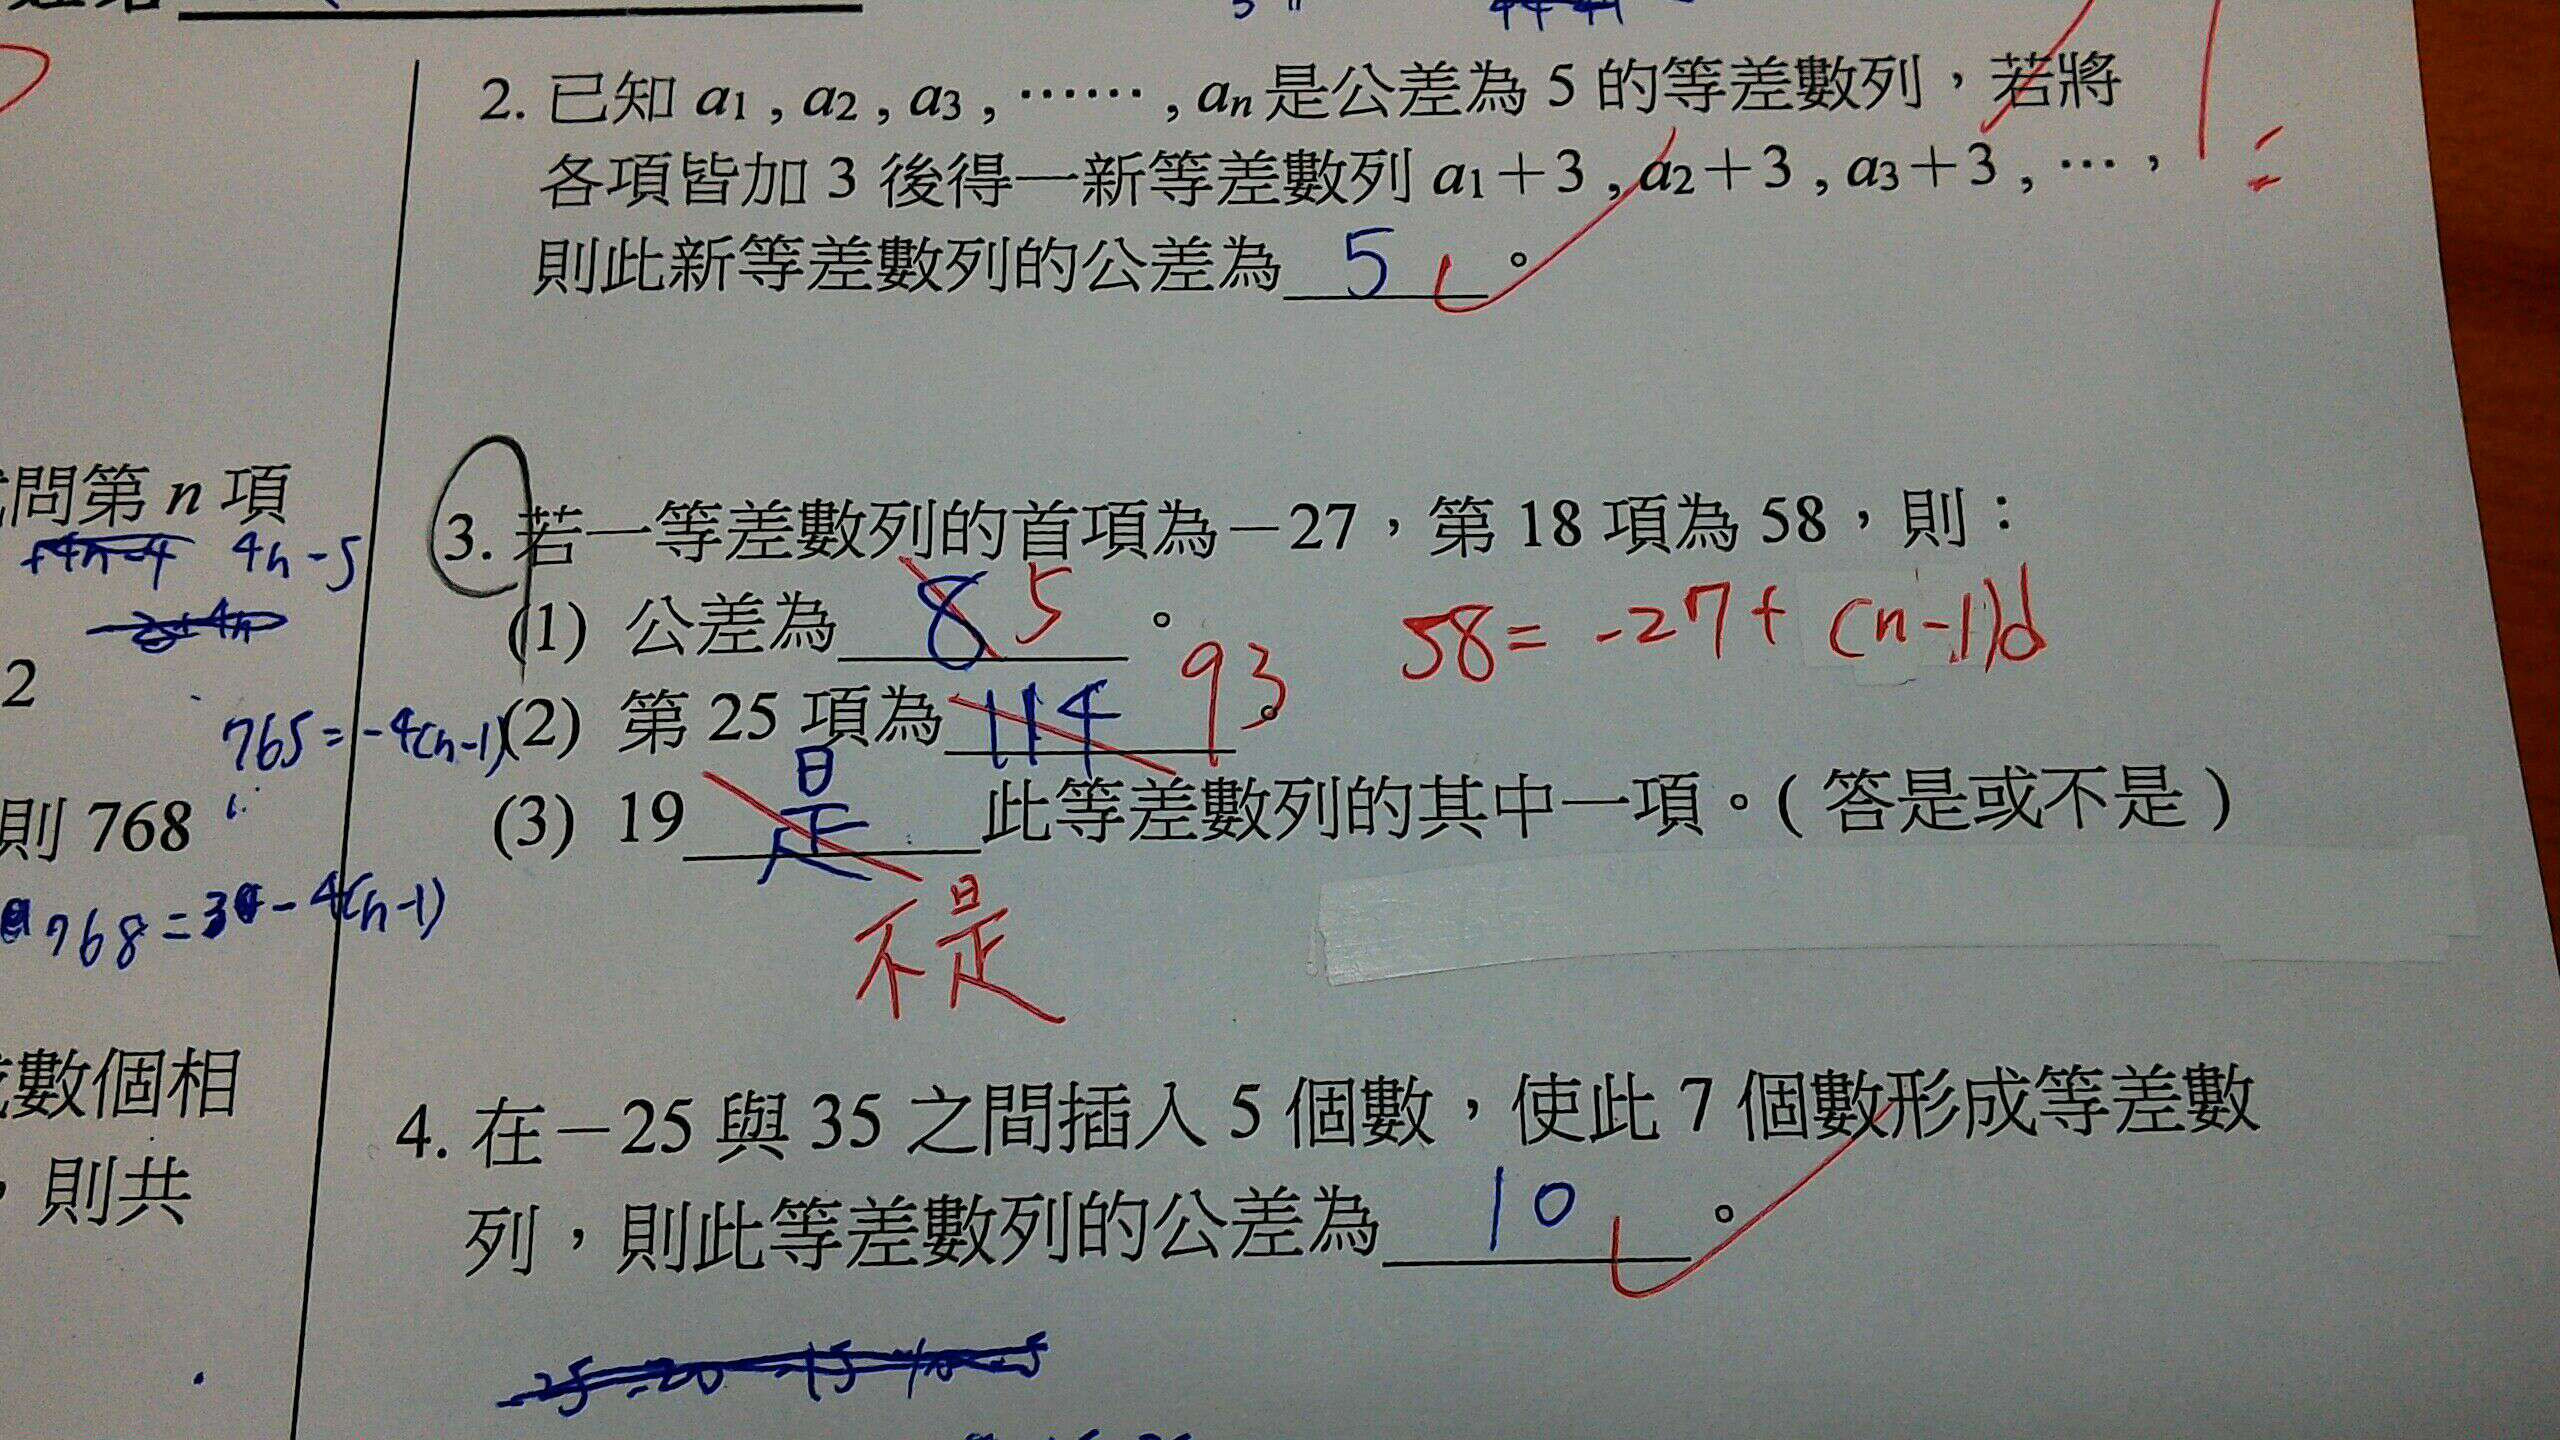 2. 已知 a1 , a2 , a3 , …… , an是公差為 5 的等差數列，若將
各項皆加 3 後得一新等差數列 a1＋3 , a2＋3 , a3＋3 , …，
則此新等差數列的公差為 5 。
問第 n 項
+4n-4 4n-5
2
765=-4(n-1)
則 768
768=3 -4(n-1)
數個相
，則共
3. 若一等差數列的首項為－27，第 18 項為 58，則：
(1) 公差為 8 5 。 58= -27+ (n-1)d
(2) 第 25 項為 114 93 。
(3) 19 是 此等差數列的其中一項。( 答是或不是 )
不是
4. 在－25 與 35 之間插入 5 個數，使此 7 個數形成等差數
列，則此等差數列的公差為 10 。